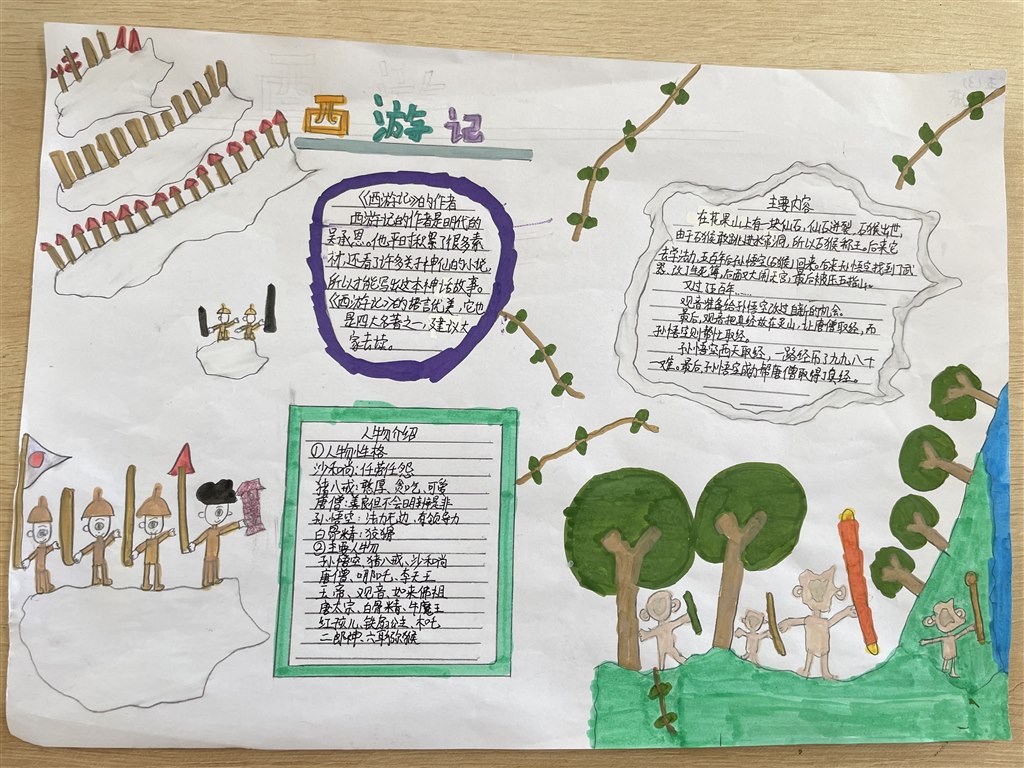 西游记
《西游记》的作者
西游记的作者是明代的
吴承恩。他平日积累了很多素
材,还看了许多关于神仙的小说,
所以才能写出这本神话故事。
《西游记》的语言优美,它也
是四大名著之一,建议大
家去读。
主要内容
在花果山上有一块仙石,仙石迸裂,石猴出世,
由于石猴敢到进水帘洞,所以石猴都王。后来它
去学法力,五百年后孙悟空(石猴)回来,后来孙悟空找到了武
器,改了生死簿,后面又大闹天宫,最后被压五指山。
又过了五百年……
观音准备给孙悟空改过自新的机会。
最后,观音把真经放在灵山,让唐僧取经,而
孙悟空则帮忙取经。
孙悟空西天取经,一路经历了九九八十
一难。最后孙悟空成功帮唐僧取得了真经。
人物介绍
①人物性格
沙和尚:任劳任怨
猪八戒:憨厚、贪吃、可爱
唐僧:善良但不会明辨是非
孙悟空:法力无边、有领导力
白骨精:狡猾
②主要人物
孙悟空、猪八戒、沙和尚
唐僧、哪吒、李天王
玉帝、观音、如来佛祖
唐太宗、白骨精、牛魔王
红孩儿、铁扇公主、木吒
二郎神、六耳猕猴